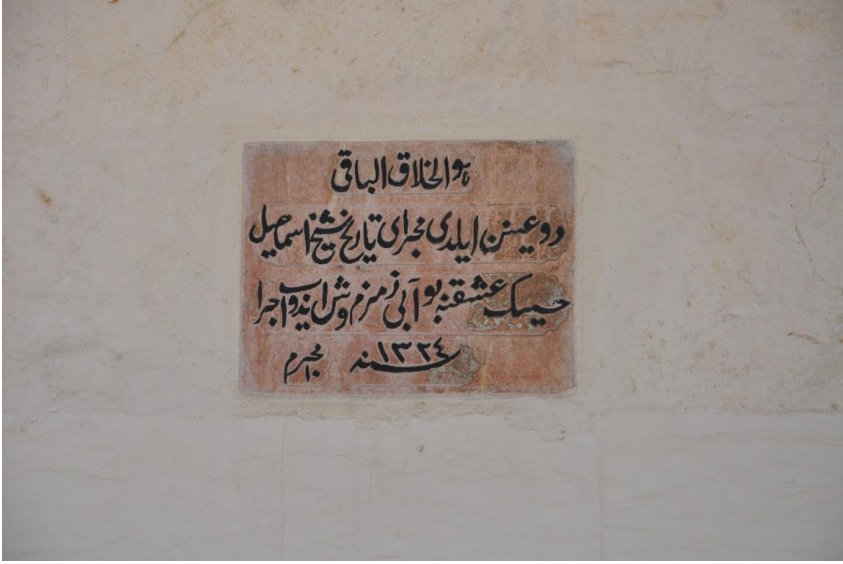 هو الخلاق الباقی
دو عینن ایلدی مجرای تاریخ شیخ اسماعیل
حسینک عشقنه بو آبی زمزم وش ایدوب اجرا
سنه ١٣٢٤ ١٠ محرم